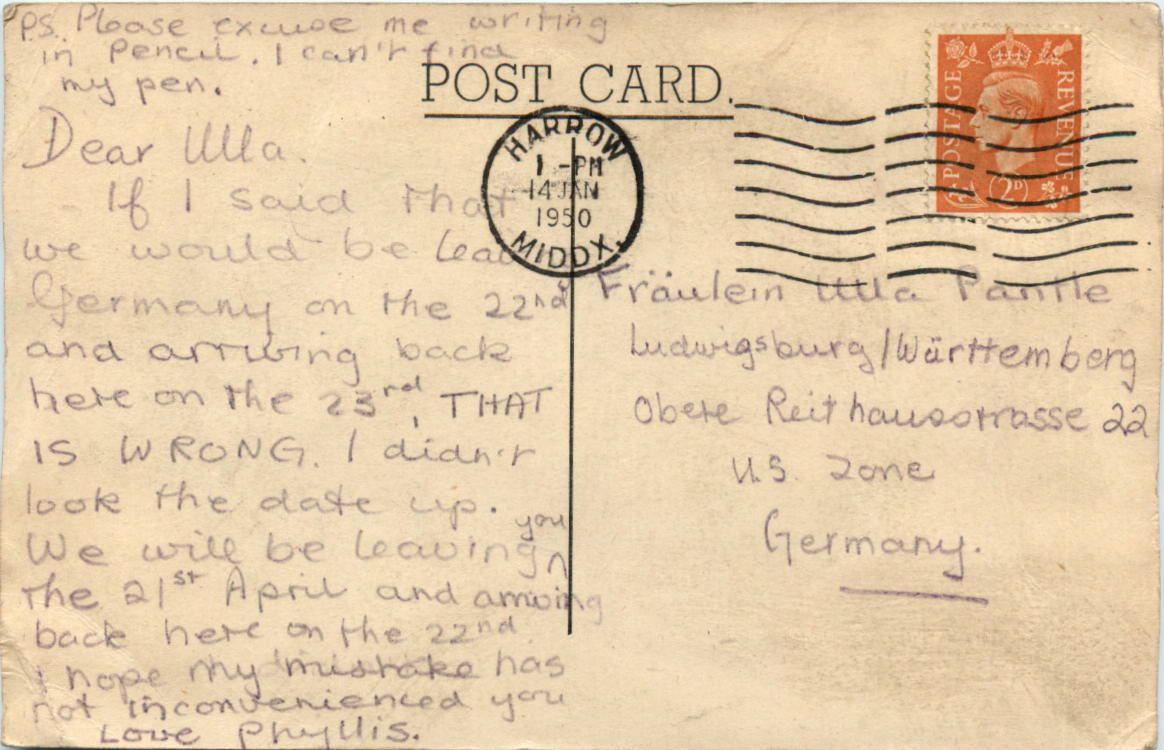 PS. Please excuse me writing
in pencil. I can't find
my pen.
POST CARD.
Dear Ulla.
If I said that
we would be lea
Germany on the 22nd
and arriving back
here on the 23rd, THAT
IS WRONG. I didn't
look the date up.
We will be leaving you
the 21st April and arriving
back here on the 22nd
I hope my mistake has
not inconvenienced you
Love Phyllis.
HARROW
1 - PM
14 JAN
1950
MIDDX.
POSTAGE
REVENUE
2D
Fräulein Ulla Pantle
Ludwigsburg/Württemberg
Obere Reithausstrasse 22
U.S. Zone
Germany.